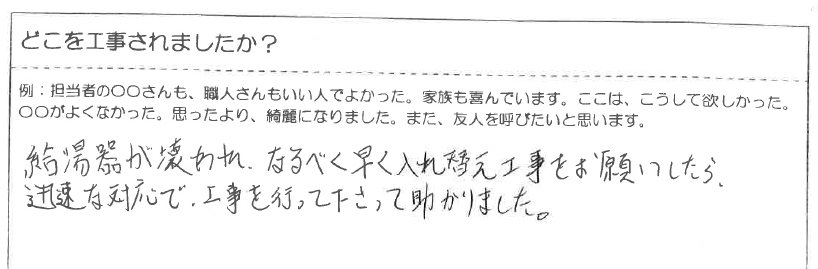 どこを工事されましたか？
例：担当者の〇〇さんも、職人さんもいい人でよかった。家族も喜んでいます。ここは、こうして欲しかった。
〇〇がよくなかった。思ったより、綺麗になりました。また、友人を呼びたいと思います。
給湯器が壊われ、なるべく早く入れ替え工事をお願いしたら、
迅速な対応で、工事を行って下さって助かりました。